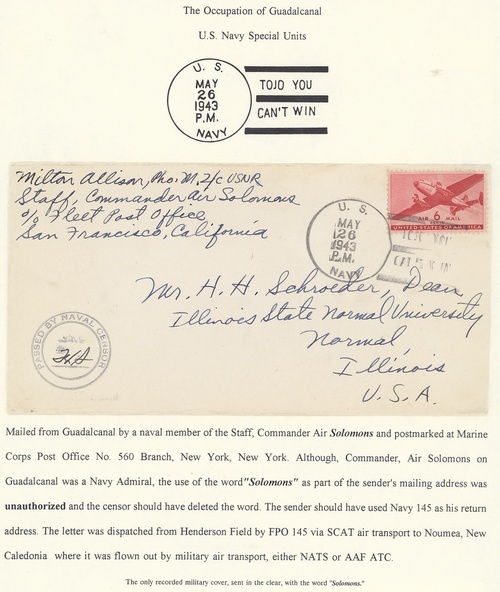 The Occupation of Guadalcanal
U.S. Navy Special Units
U. S.
MAY
26
1943
P.M.
NAVY
TOJO YOU
CAN'T WIN
Milton Allison, Pho. M. 2/c USNR
Staff, Commander Air Solomons
c/o Fleet Post Office
San Francisco, California
U. S.
MAY
26
1943
P.M.
NAVY
AIR 6 MAIL
CENTS
UNITED STATES OF AMERICA
Mr. H. H. Schroeder, Dean
Illinois State Normal University
Normal,
Illinois
U. S. A.
PASSED BY NAVAL CENSOR
Mailed from Guadalcanal by a naval member of the Staff, Commander Air Solomons and postmarked at Marine
Corps Post Office No. 560 Branch, New York, New York. Although, Commander, Air Solomons on
Guadalcanal was a Navy Admiral, the use of the word "Solomons" as part of the sender's mailing address was
unauthorized and the censor should have deleted the word. The sender should have used Navy 145 as his return
address. The letter was dispatched from Henderson Field by FPO 145 via SCAT air transport to Noumea, New
Caledonia where it was flown out by military air transport, either NATS or AAF ATC.
The only recorded military cover, sent in the clear, with the word "Solomons."